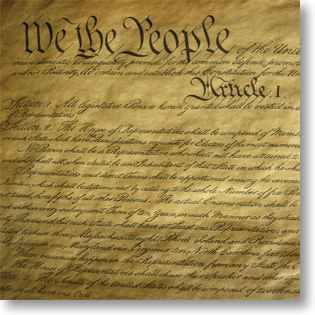 We the People of the Unite
insure domestic Tranquility, provide for the common defence, promote
and our Posterity, do ordain and establish this Constitution for the Unit
Article. I
Section. 1. All legislative Powers herein granted shall be vested in a
of Representatives.
Section. 2. The House of Representatives shall be composed of Mem
Qualifications requisite for Electors of the most numerou
No Person shall be a Representative who shall not have attained to
and who shall not, when elected, be an Inhabitant of that State in which he sha
Representatives and direct Taxes shall be apportioned among the several
which shall be determined by adding to the whole Number of free Per
three fifths of all other Persons. The actual Enumeration shall be
subsequent Term of ten Years, in such Manner as they sha
Thousand, but each State shall have at Least one Representative; and
entitled to chuse three, Massachusetts eight, Rhode Island and Providence
Maryland six, Virginia ten, North Carolina five, South
When vacancies happen in the Representation from any State, the
The House of Representatives shall chuse their Speaker and other
The Senate of the United States shall be composed of two Senat
shall have one Vote.